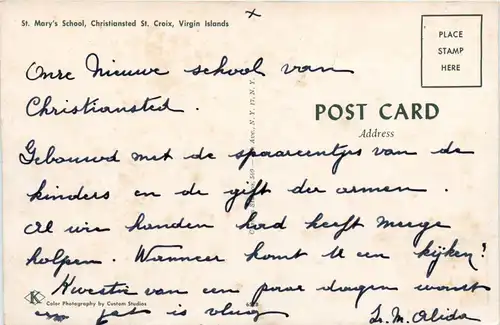 St. Mary's School, Christiansted St. Croix, Virgin Islands
PLACE
STAMP
HERE
Onze Nieuwe school van
Christiansted.
POST CARD
Address
Gebouwd met de spaarcentjes van de
kinders en de gift der armen.
Al wie handen had heeft meege
holpen. Wanneer komt U een kijken?
Kwestie van een paar dagen want
een jet is vlug
Sr. M. Alida
K
Color Photography by Custom Studios
Ave., N.Y. 17, N.Y.